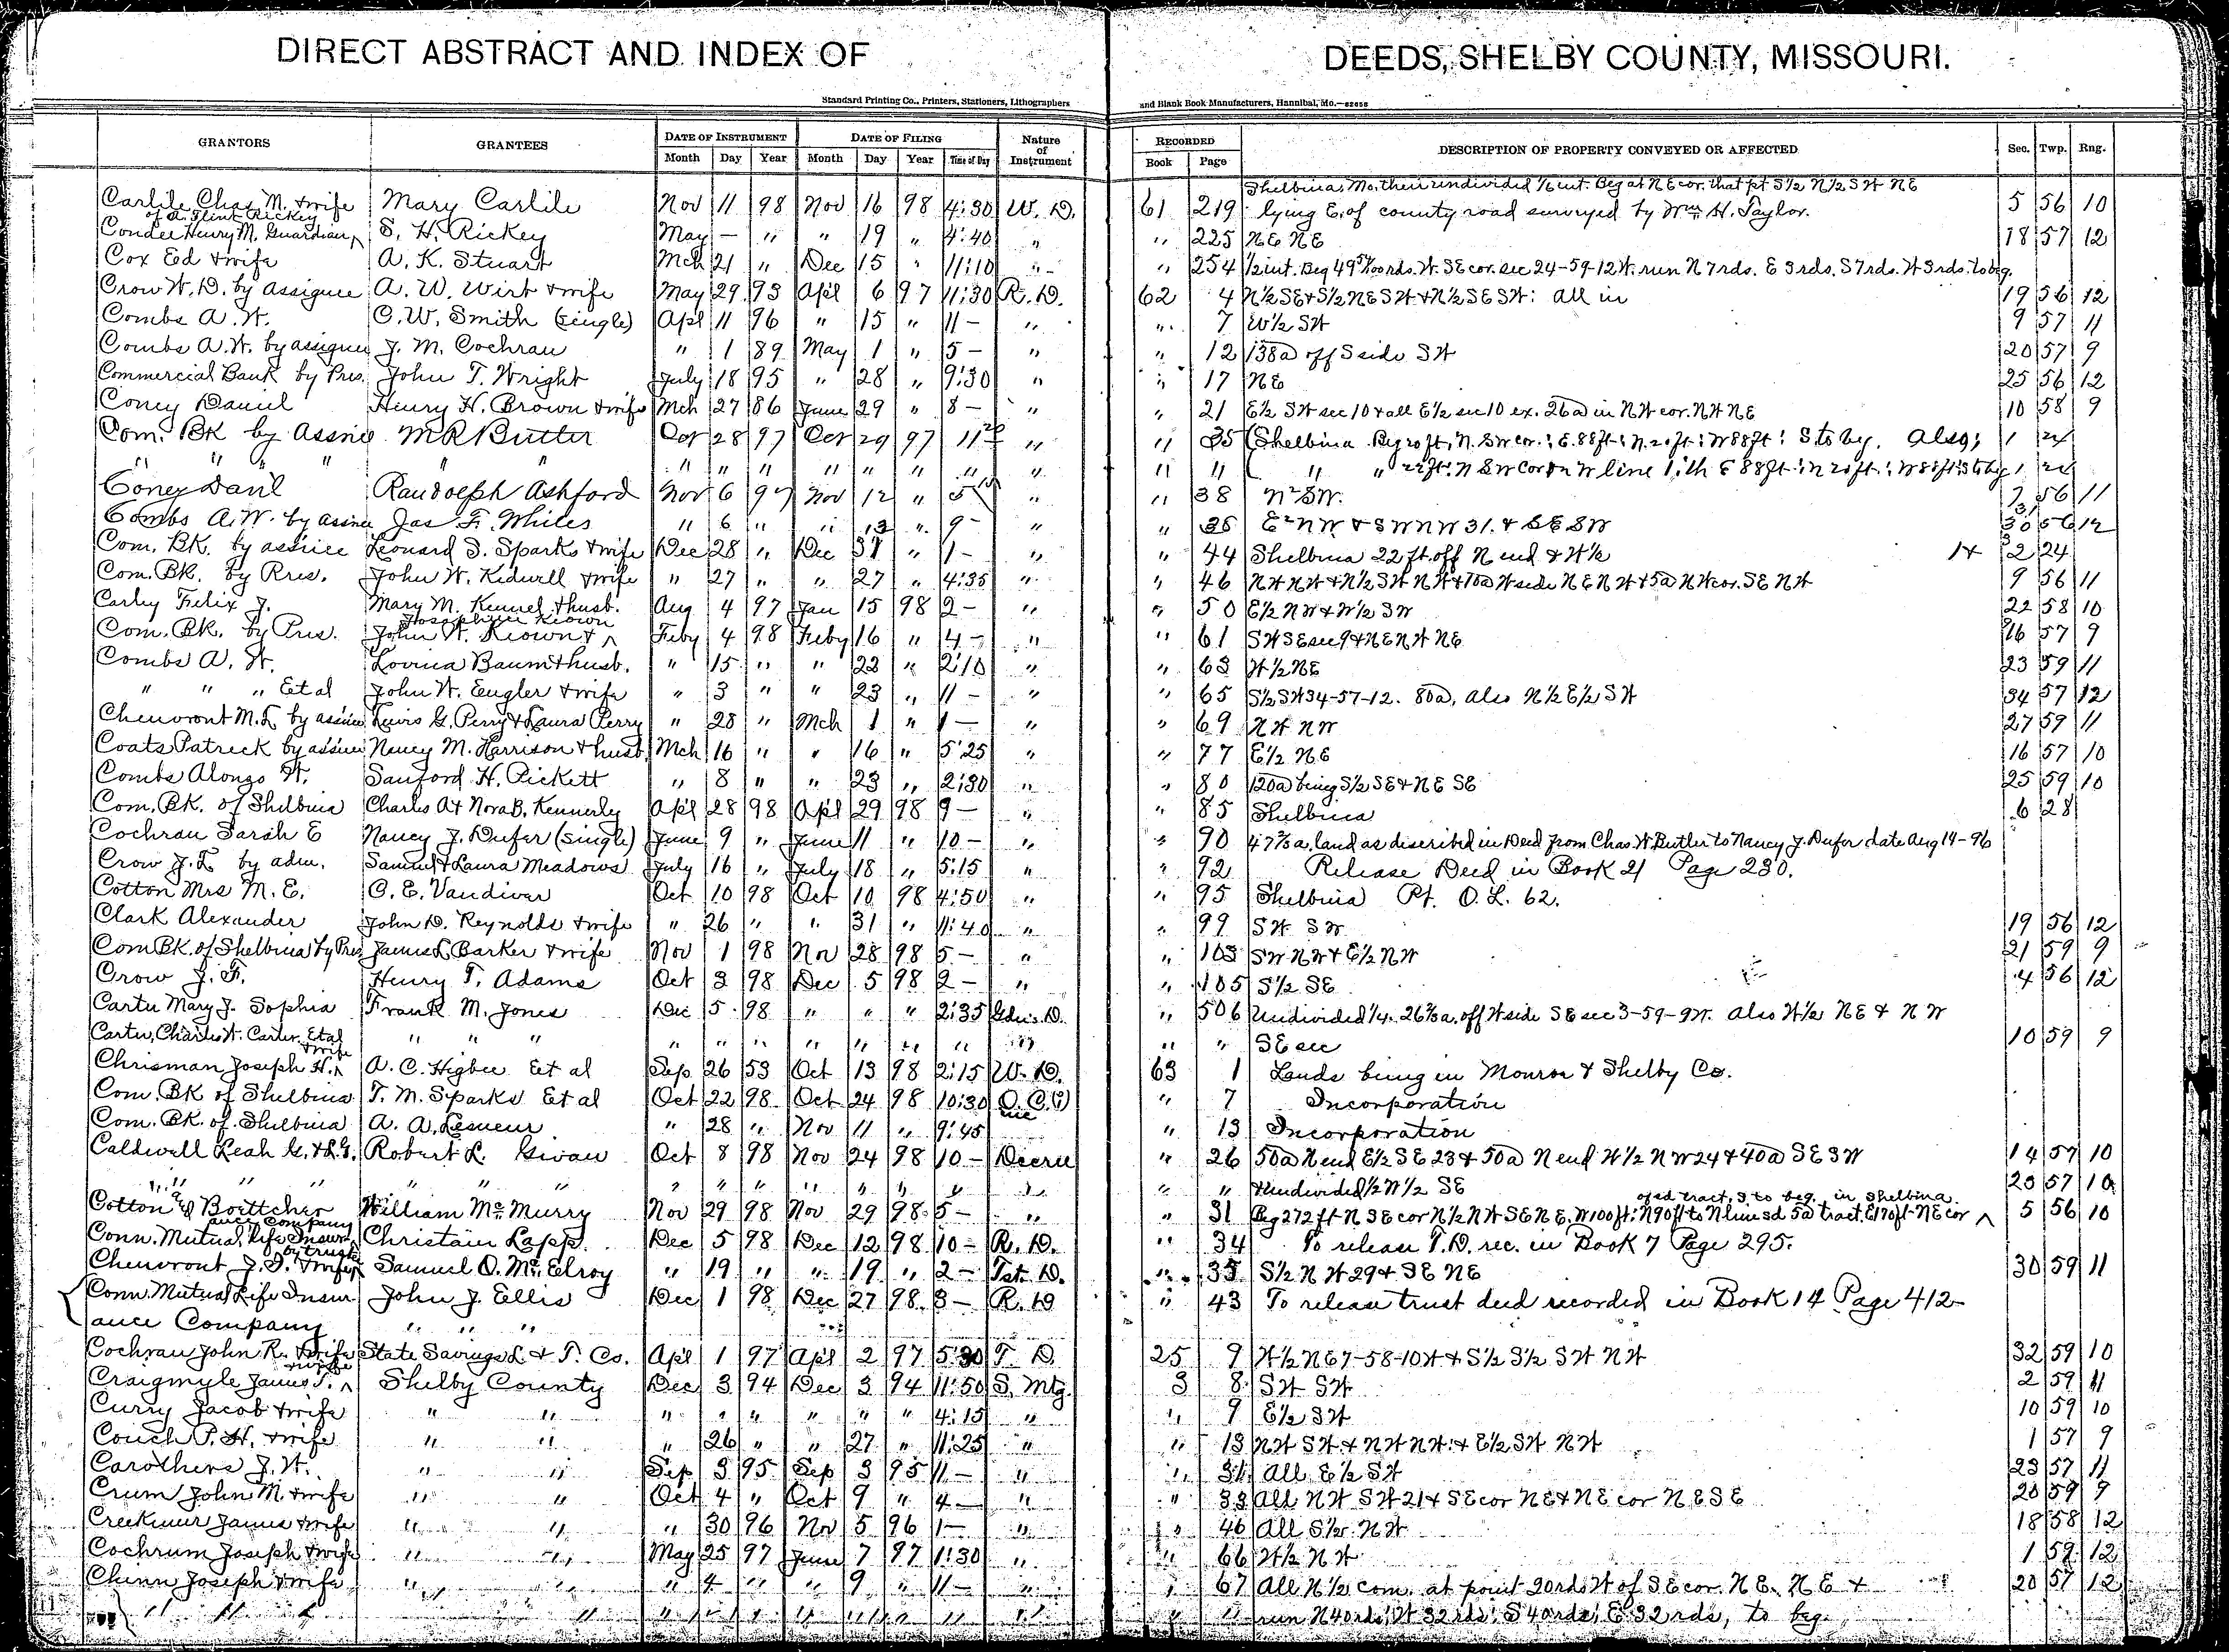 DIRECT ABSTRACT AND INDEX OF DEEDS, SHELBY COUNTY, MISSOURI.
Standard Printing Co., Printers, Stationers, Lithographers and Blank Book Manufacturers, Hannibal, Mo.—82658
GRANTORS GRANTEES DATE OF INSTRUMENT DATE OF FILING Nature of Instrument RECORDED DESCRIPTION OF PROPERTY CONVEYED OR AFFECTED Sec. Twp. Rng.
Month Day Year Month Day Year Time of Day Book Page
Shelbina, Mo. their undivided 1/6 int. Beg at NE cor. that pt S1/2 N1/2 SW NE
Carlile Chas. M. & wife Mary Carlile Nov 11 98 Nov 16 98 4:30 W. D. 61 219 lying E. of county road surveyed by Wm H. Taylor. 5 56 10
of A. Flint Rickey
Condee Henry M. Guardian S. H. Rickey May — " " 19 " 4:40 " " 225 NE NE 18 57 12
Cox Ed & wife A. K. Stuart Mch 21 " Dec 15 " 11:10 " " 254 1/2 int. Beg 49 rds. W. SE cor. sec 24-59-12 W. run N 7 rds. E 3 rds. S 7 rds. W 3 rds. to beg.
Crow W. D. by assignee A. W. Wirt & wife May 29 93 Apl 6 97 11:30 R. D. 62 4 N1/2 SE & S1/2 NE SW & N1/2 SE SW: all in 19 56 12
Combs A. W. C. W. Smith (single) Apl 11 96 " 15 " 11 — " " 7 W1/2 SW 9 57 11
Combs A. W. by assignee J. M. Cochran " 1 89 May 1 " 5 — " " 12 138a off S side SW 20 57 9
Commercial Bank by Pres. John T. Wright July 18 95 " 28 " 9:30 " " 17 NE 25 56 12
Coney Daniel Henry H. Brown & wife Mch 27 86 June 29 " 8 — " " 21 E1/2 SW sec 10 & all E1/2 sec 10 ex. 26a in NW cor. NW NE 10 58 9
Com. BK by Assnee M R Butler Oct 28 97 Oct 29 97 11 " " 35 Shelbina Beg 20 ft. N. SW cor.; E. 88 ft; N. 20 ft; W 88 ft; S. to beg. Also; 1
" " " " " " " " " " " " " " "
Coney Danl Randolph Ashford Nov 6 97 Nov 12 " 5 " " 38 N 1/2 SW. 7 56 11
Combs A. W. by asinee Jas F. Whiles " 6 " " 13 " 9 — " " E 1/2 NW & SW NW 31. & SE SW 30 56 12
Com. BK. by assnee Leonard S. Sparks & wife Dec 28 " Dec 31 " 1 — " " 44 Shelbina 22 ft. off N end & W1/2 2 24
Com. BK. by Pres. John W. Kidwell & wife " 27 " " 27 " 4:35 " " 46 NW NW & N1/2 SW NW & 10a W side NE NW & 5a NW cor. SE NW 9 56 11
Carley Felix J. Mary M. Kennel & husb. Aug 4 97 Jan 15 98 2 — " " 50 E1/2 NW & W1/2 SW 22 58 10
Josephine Keown
Com. BK. by Pres. John W. Keown & Feby 4 98 Feby 16 " 4 — " " 61 SW SE sec 9 & NE NW NE 16 57 9
Combs A. W. Lovina Baum & husb. " 15 " " 22 " 2:10 " " 63 W1/2 NE 23 59 11
" " " Et al John W. Engler & wife " 3 " " 23 " 11 — " " 65 S1/2 SW 34-57-12. 80a, also N1/2 E1/2 SW 34 57 12
Chenvront M. L. by assinee Lewis G. Perry & Laura Perry " 28 " Mch 1 " 1 — " " 69 NW NW 27 59 11
Coats Patrick by assinee Nancy M. Harrison & husb. Mch 16 " " 16 " 5:25 " " 77 E1/2 NE 16 57 10
Combs Alonzo W. Sanford H. Pickett " 8 " " 23 " 2:30 " " 80 120a being S1/2 SE & NE SE 25 59 10
Com. BK. of Shelbina Charles A & Nora B. Kennerly Apl 28 98 Apl 29 98 9 — " " 85 Shelbina 6 28
Cochran Sarah E Nancy J. Dufer (single) June 9 " June 11 " 10 — " " 90 47 2/3 a. land as discribed in Deed from Chas. W. Butler to Nancy J. Dufer date Aug 14-96
Crow J. L. by adm. Samuel & Laura Meadows July 16 " July 18 " 5:15 " " 92 Release Deed in Book 21 Page 230.
Cotton Mrs M. E. C. E. Vandiver Oct 10 98 Oct 10 98 4:50 " " 95 Shelbina Pt. O. L. 62.
Clark Alexander John D. Reynolds & wife " 26 " " 31 " 11:40 " " 99 SW SW 19 56 12
Com BK. of Shelbina by Pres. James L. Barker & wife Nov 1 98 Nov 28 98 5 — " " 103 SW NW & E1/2 NW 21 59 9
Crow J. F. Henry T. Adams Oct 3 98 Dec 5 98 2 — " " 105 S1/2 SE 4 56 12
Carter Mary J. Sophia Frank M. Jones Dec 5 98 " " " 2:35 Gdn's D. " 506 Undivided 1/4. 26 2/3 a. off W side SE sec 3-59-9 W. also W1/2 NE & NW
Carter, Charles W. Carter Et al " " " " " " " " " " " " SE sec 10 59 9
& wife
Chrisman Joseph H. A. C. Higbee Et al Sep 26 53 Oct 13 98 2:15 W. D. 63 1 Lands being in Monroe & Shelby Co.
Com. BK of Shelbina T. M. Sparks Et al Oct 22 98 Oct 24 98 10:30 " 7 Incorporation
Com. BK. of Shelbina A. A. Lesueur " 28 " Nov 11 " 9:45 " 13 Incorporation
Caldwell Leah G. & L. G. Robert L. Givan Oct 8 98 Nov 24 98 10 — Decree " 26 50a N end E1/2 SE 23 & 50a N end W1/2 NW 24 & 40a SE SW 14 57 10
" " " " " " " " " " " " " " " " Undivided 1/2 W1/2 SE 20 57 10
of sd tract, S to beg. in Shelbina.
Cotton & Boettcher William McMurry Nov 29 98 Nov 29 98 5 — " " 31 Beg 272 ft N SE cor N1/2 NW SE NE, W 100 ft; N 90 ft to N line sd 5a tract, E 170 ft NE cor 5 56 10
ance Company
Conn. Mutual Life Insur Christain Lapp. Dec 5 98 Dec 12 98 10 — R. D. " 34 To release T. D. rec. in Book 7 Page 295.
by trustee
Chenvront J. S. & wife Samuel O. McElroy " 19 " " 19 " 2 — Tst. D. " 35 S1/2 NW 29 & SE NE 30 59 11
Conn. Mutual Life Insur John J. Ellis Dec 1 98 Dec 27 98 3 — R. D " 43 To release trust deed recorded in Book 14 Page 412
ance Company " " "
Cochran John R. & wife State Savings L. & T. Co. Apl 1 97 Apl 2 97 5:30 T. D. 25 9 W1/2 NE 7-58-10 W & S1/2 S1/2 SW NW 32 59 10
& wife
Craigmyle James T. Shelby County Dec 3 94 Dec 3 94 11:50 S. Mtg. 3 8 SW SW 2 59 11
Curry Jacob & wife " " " " " " " " 4:15 " " 9 E1/2 SW 10 59 10
Couch P. H. & wife " " " 26 " " 27 " 11:25 " " 13 NW SW & NW NW & E1/2 SW NW 1 57 9
Carothers J. W. " " Sep 3 95 Sep 3 95 11 — " " 31 All E1/2 SW 23 57 11
Crum John M. & wife " " Oct 4 " Oct 9 " 4 — " " 33 All NW SW 21 & SE cor NE & NE cor NE SE 20 59 9
Creekmur James & wife " " " 30 96 Nov 5 96 1 — " " 46 All S1/2 NW 18 58 12
Cochrum Joseph & wife " " May 25 97 June 7 97 1:30 " " 66 W1/2 NW 1 59 12
Chinn Joseph & wife " " " 4 " " 9 " 11 — " " 67 All N1/2 com. at point 20 rds W of SE cor. NE. NE & 20 57 12
" " " " " " " " " " " " " " run N 40 rds; W 32 rds; S 40 rds; E 32 rds, to beg.